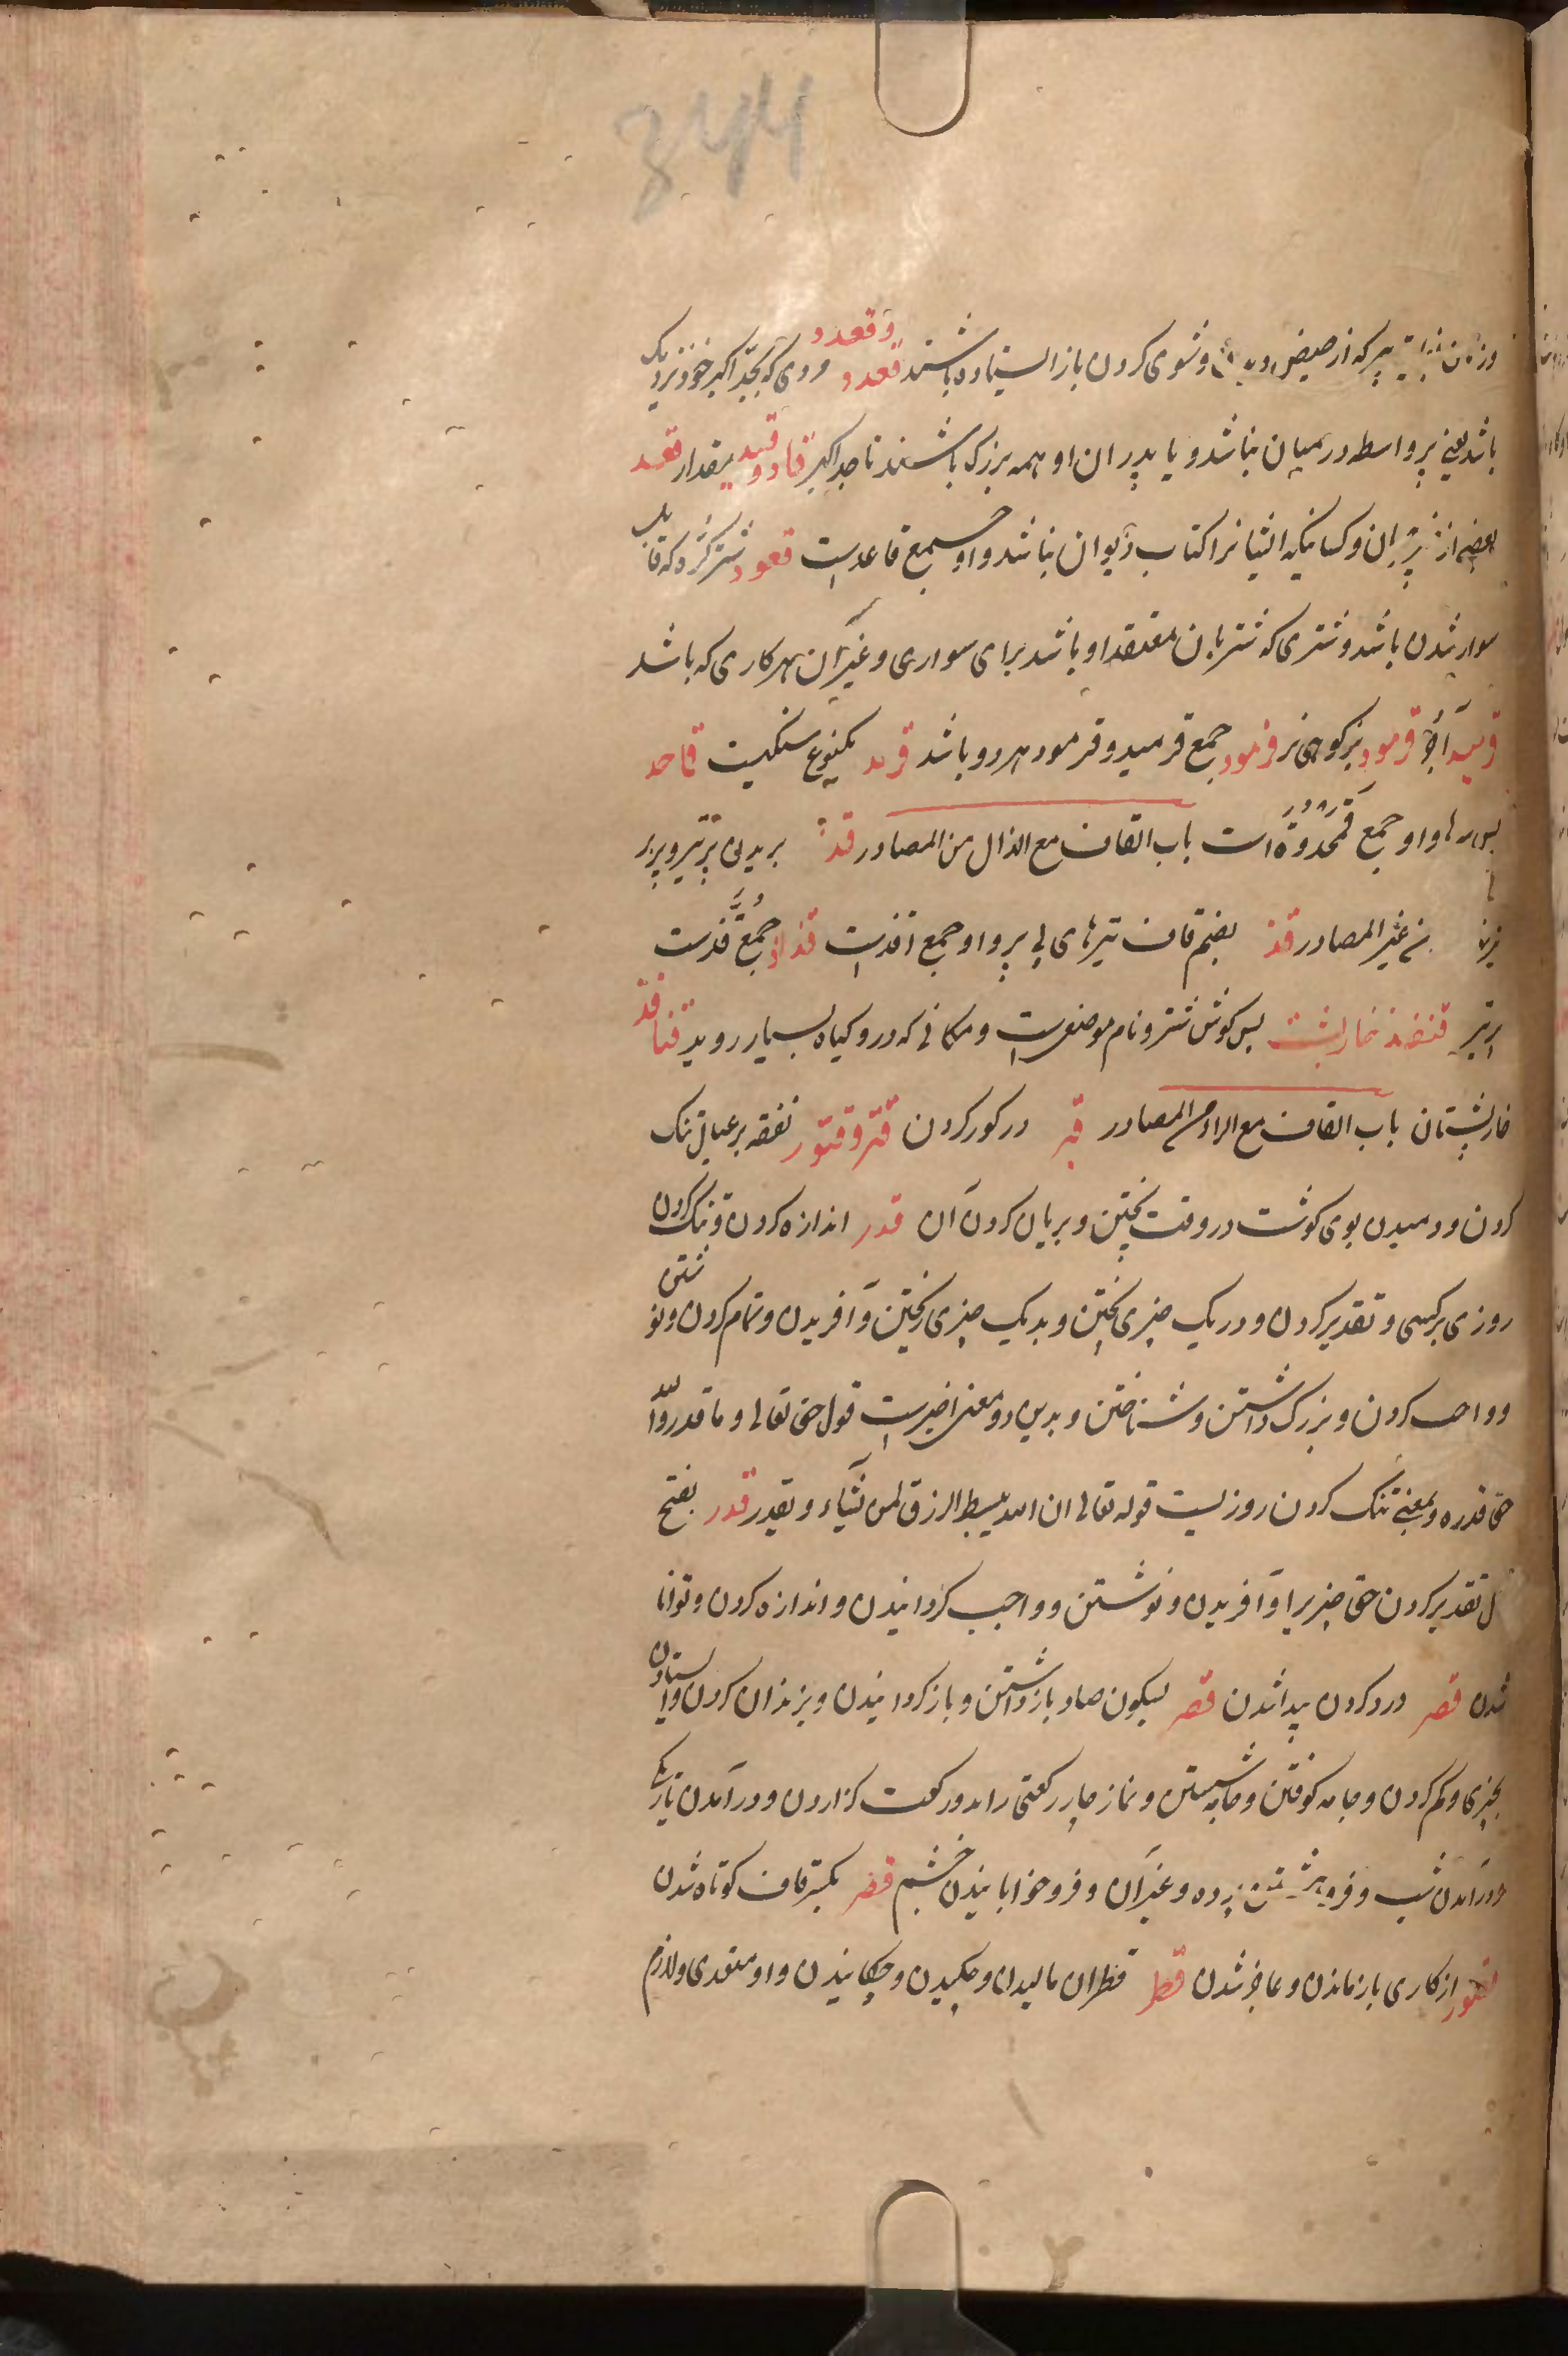 پیر که از حیض و شوی کردن باز ایستاده باشند قعدد و قعدد مردی که بجد اکبر خود نزدیک
باشد یعنی پر واسطه در میان نباشد و یا پدران او همه بزرک باشند تا جد اکبر قاد و قید مقدار قعد
بعضی از و کسانیکه ایشانرا کتاب دیوان نباشد و او جمع قاعدست قعود شتر کره که قابل
سوار شدن باشد و شتری که شتربان معتقد او باشد برای سواری و غیر آن بهر کاری که باشد
قرمید آجر قرمود بز کوهی نر قرمود جمع قرمید و قرمود هر دو باشد قرد یکنوع سنکیست قماحد
پس سرها و او جمع قمحدوة است باب القاف مع الذال من المصادر قذ بریدن پر تیر و پر بر
من غیر المصادر قذ بضم قاف تیرهای بی پر و او جمع اقذست قذاذ جمع قذست
قنفذ خارپشت پس کوش شتر و نام موضعیست و مکانی که درو کیاه بسیار روید قنافذ
خارپشتان باب القاف مع الراء من المصادر قبر در کور کردن قتر و قتور نفقه بر عیال تنک
کردن و دمیدن بوی کوشت در وقت پختن و بریان کردن آن قدر اندازه کردن و تنک کردن
روزی بر کسی و تقدیر کردن و در دیک چیزی پختن و بدیک چیزی پختن و آفریدن و تمام کردن و نوشتن
و واجب کردن و بزرک داشتن و شناختن و بدین دو معنی اخیرست قول حق تعالی و ما قدروا الله
حق قدره و بمعنی تنک کردن روزیست قوله تعالی ان الله یبسط الرزق لمن یشاء و یقدر قدر بفتح
تقدیر کردن حق چیزیرا و آفریدن و نوشتن و واجب کردانیدن و اندازه کردن و توانا
شدن قصر درد کردن پیدا شدن قصر بسکون صاد بازداشتن و باز کردانیدن و بزندان کردن و ایستادن
بچیزی و کم کردن و جامه کوفتن و جامه شستن و نماز چار رکعتی را بدو رکعت کزاردن و در آمدن تاریکی
و در آمدن شب و فرو هشتن پرده و غیر آن و فرو خوابانیدن چشم قصر بکسر قاف کوتاه شدن
قصور از کاری باز ماندن و عاجز شدن قطر قطران مالیدن و چکیدن و چکانیدن و او متعدی و لازم